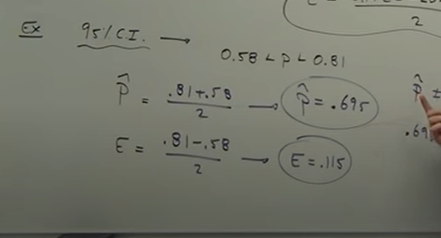 Ex 95% CI. → 0.58 < p < 0.81
p̂ = .81+.58 / 2 → p̂ = .695
E = .81-.58 / 2 → E = .115
p̂ ±
2